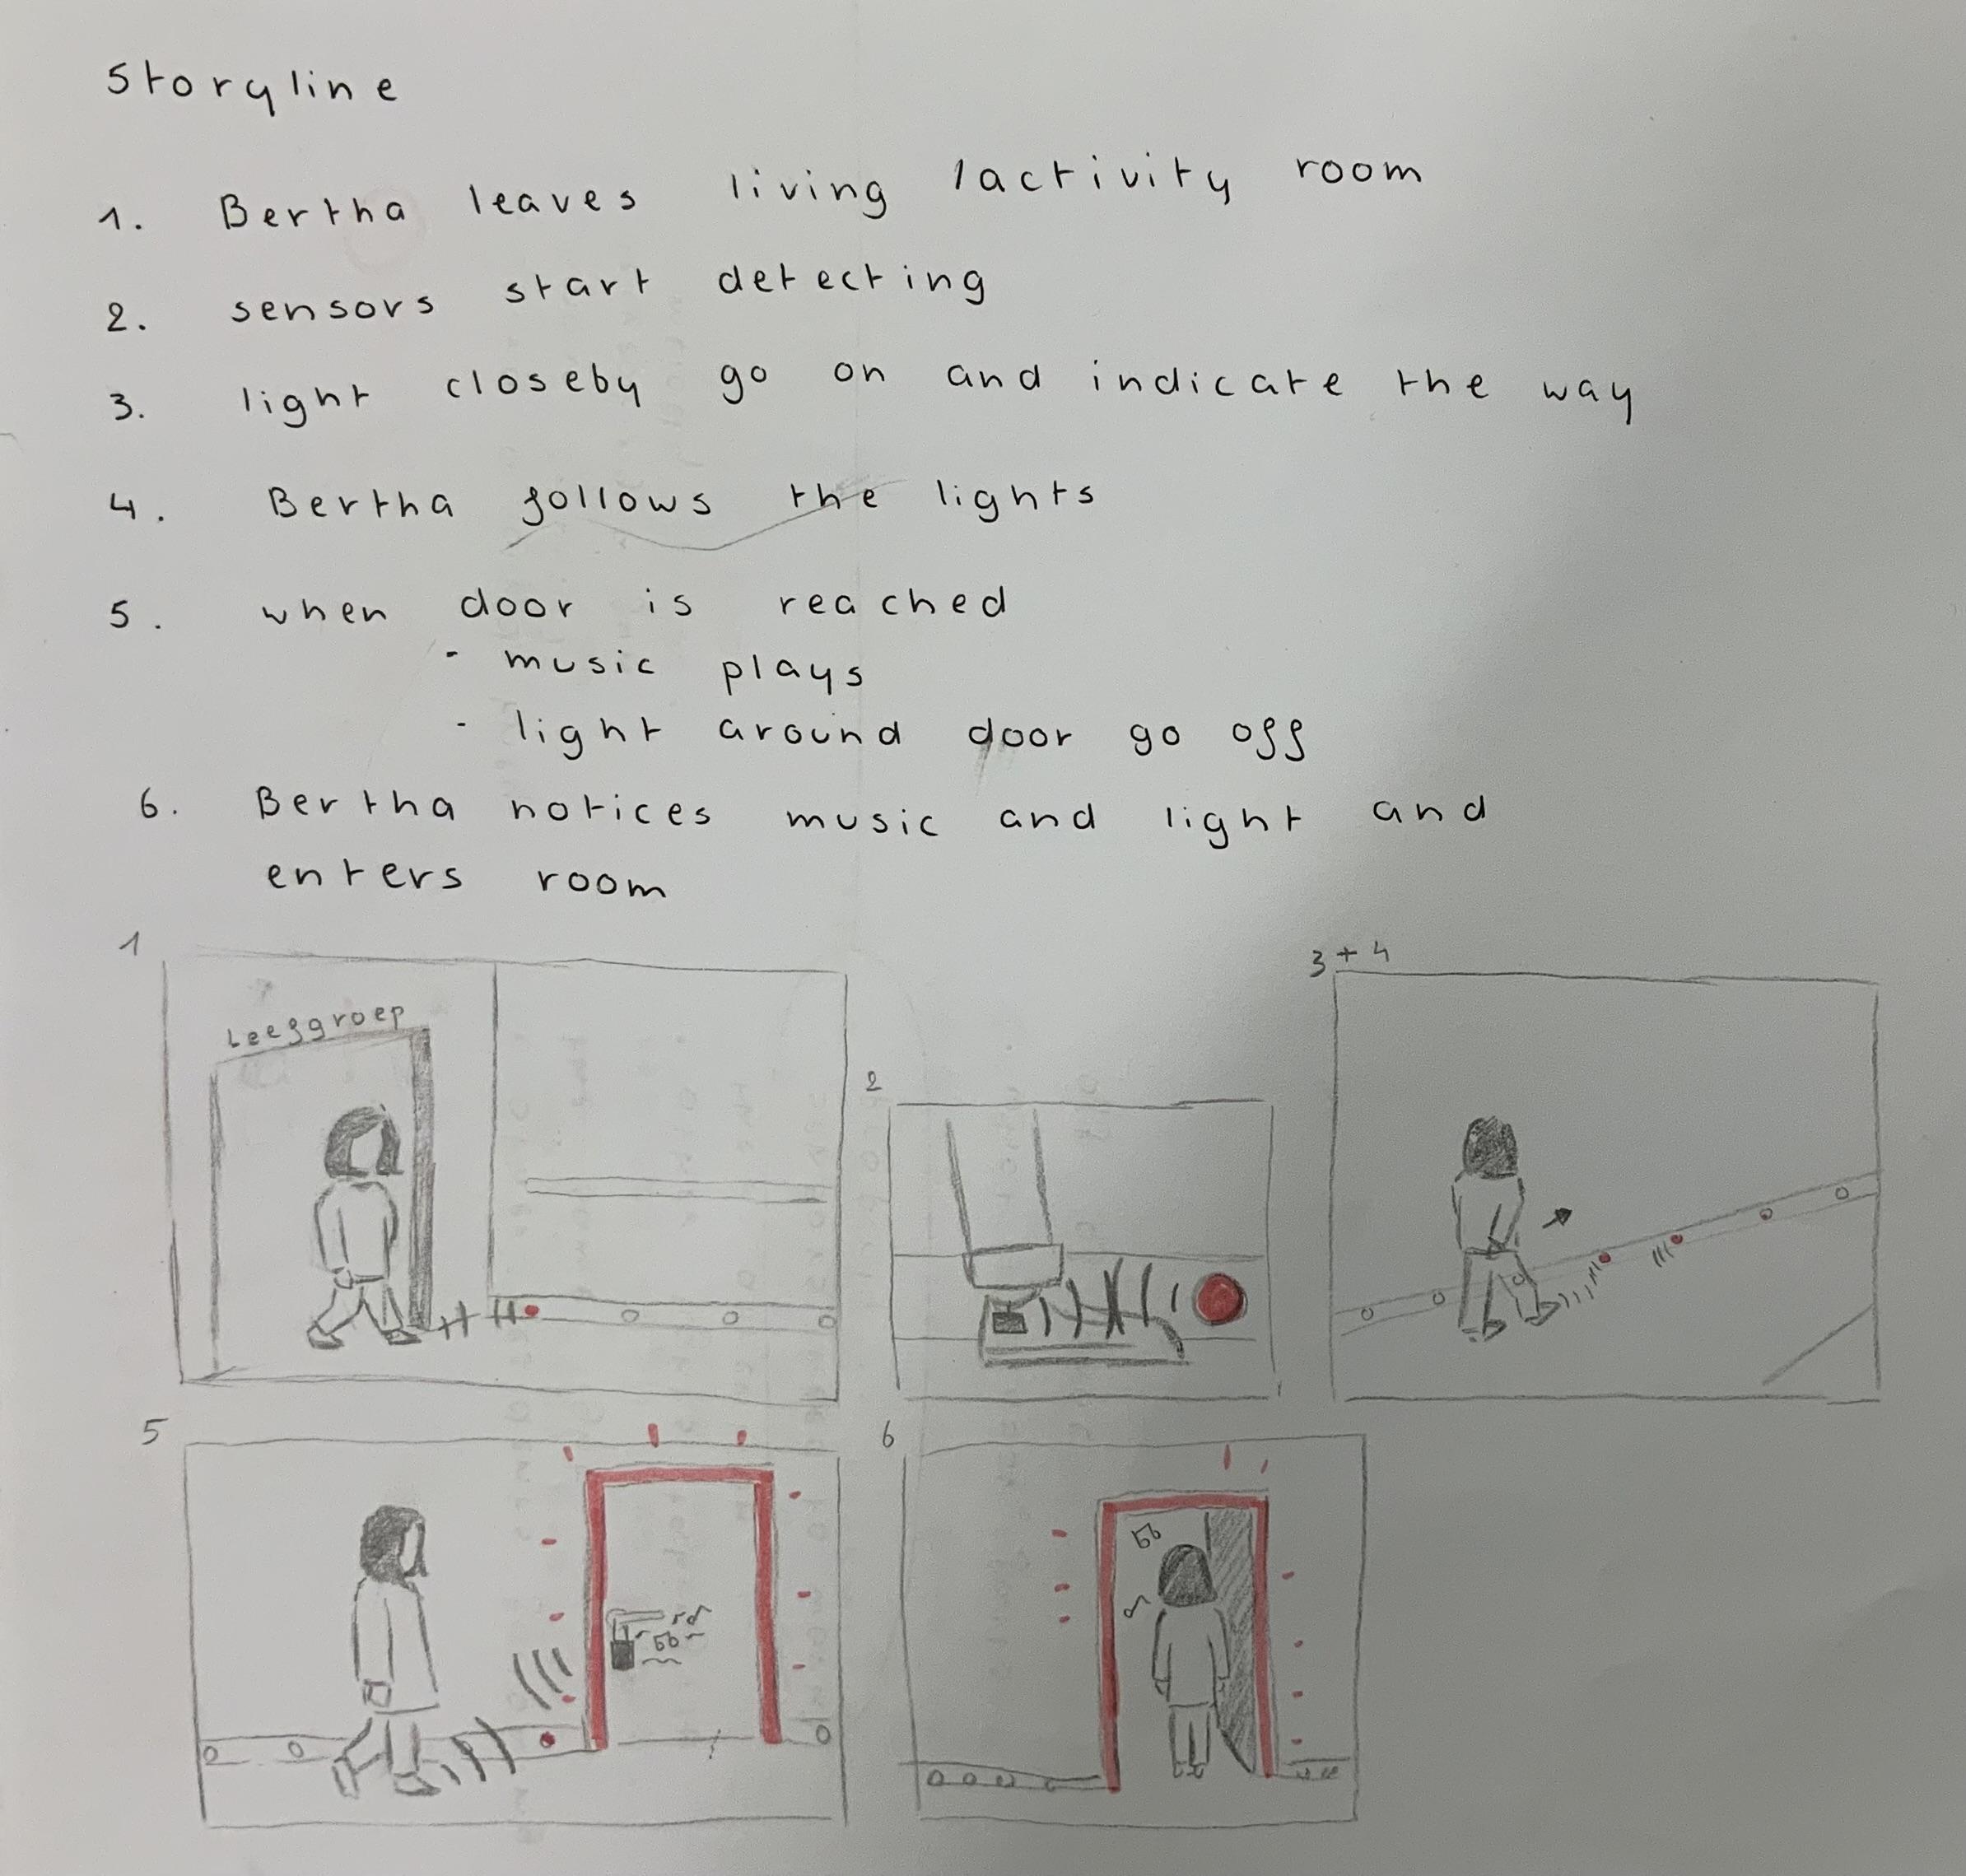 Storyline
1. Bertha leaves living /activity room
2. sensors start detecting
3. light closeby go on and indicate the way
4. Bertha follows the lights
5. when door is reached
- music plays
- light around door go off
6. Bertha notices music and light and
enters room
1
Leesgroep
2
3+4
5
6